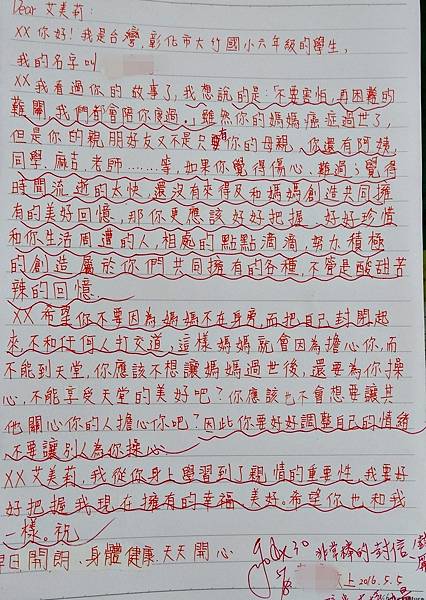 Dear 艾美莉:
XX你好!我是台灣,彰化市大竹國小六年級的學生,
我的名字叫
XX我看過你的故事了,我想說的是:「不要害怕,再困難的
難關,我們都會陪你度過。」雖然你的媽媽癌症過世了,
但是你的親朋好友又不是只有你的母親、你還有阿姨
同學、麻吉、老師……等,如果你覺得傷心、難過;覺得
時間流逝的太快,還沒有來得及和媽媽創造共同擁
有的美好回憶,那你更應該好好把握、好好珍惜
和你生活周遭的人,相處的點點滴滴,努力積極
的創造屬於你們共同擁有的各種,不管是酸甜苦
辣的回憶。
XX希望你不要因為媽媽不在身旁,而把自己封閉起
來,不和任何人打交道;這樣媽媽就會因為擔心你,而
不能到天堂,你應該不想讓媽媽過世後,還要為你操
心,不能享受天堂的美好吧?你應該也不會想要讓其
他關心你的人擔心你吧?因此你要好好調整自己的情緒
不要讓別人為你操心
XX艾美莉,我從你身上學習到了親情的重要性,我要好
好把握我現在擁有的幸福、美好。希望你也和我
一樣。祝
早日開朗、身體健康、天天開心
非常棒的封信
上2016.5.5